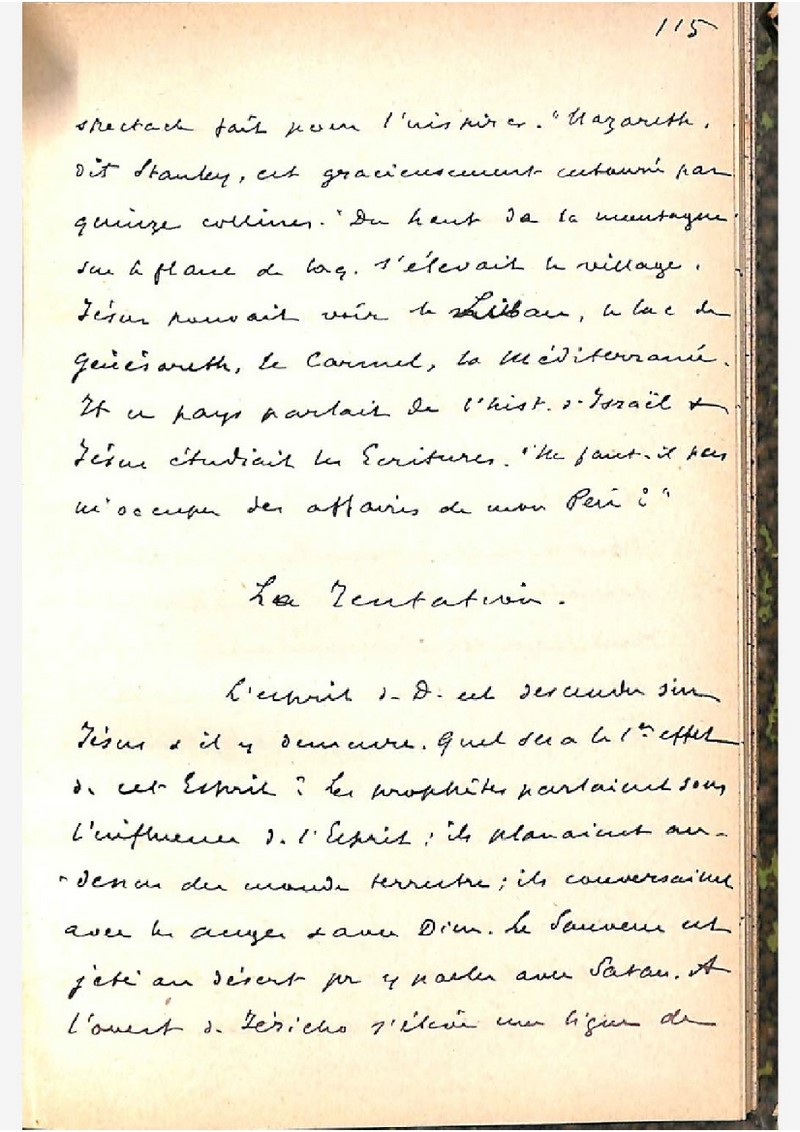 115
spectacle fait pour l'inspirer. "Nazareth,
dit Stanley, est gracieusement entouré par
quinze collines." Du haut de la montagne
sur le flanc de laq. s'élevait le village,
Jésus pouvait voir le Liban, le lac de
Génésareth, le Carmel, la Méditerranée.
Et ce pays parlait de l'hist. d'Israël &
Jésus étudiait les Ecritures. "Ne faut-il pas
m'occuper des affaires de mon Père?"
La Tentation.
L'esprit de D. est descendu sur
Jésus & il y demeure. Quel sera le 1er effet
de cet Esprit? Les prophètes parlaient sous
l'influence de l'Esprit; ils planaient au-
-dessus du monde terrestre; ils conversaient
avec les anges & avec Dieu. Le Sauveur est
jeté au désert pr y parler avec Satan. A
l'ouest de Jéricho s'élève une ligne de